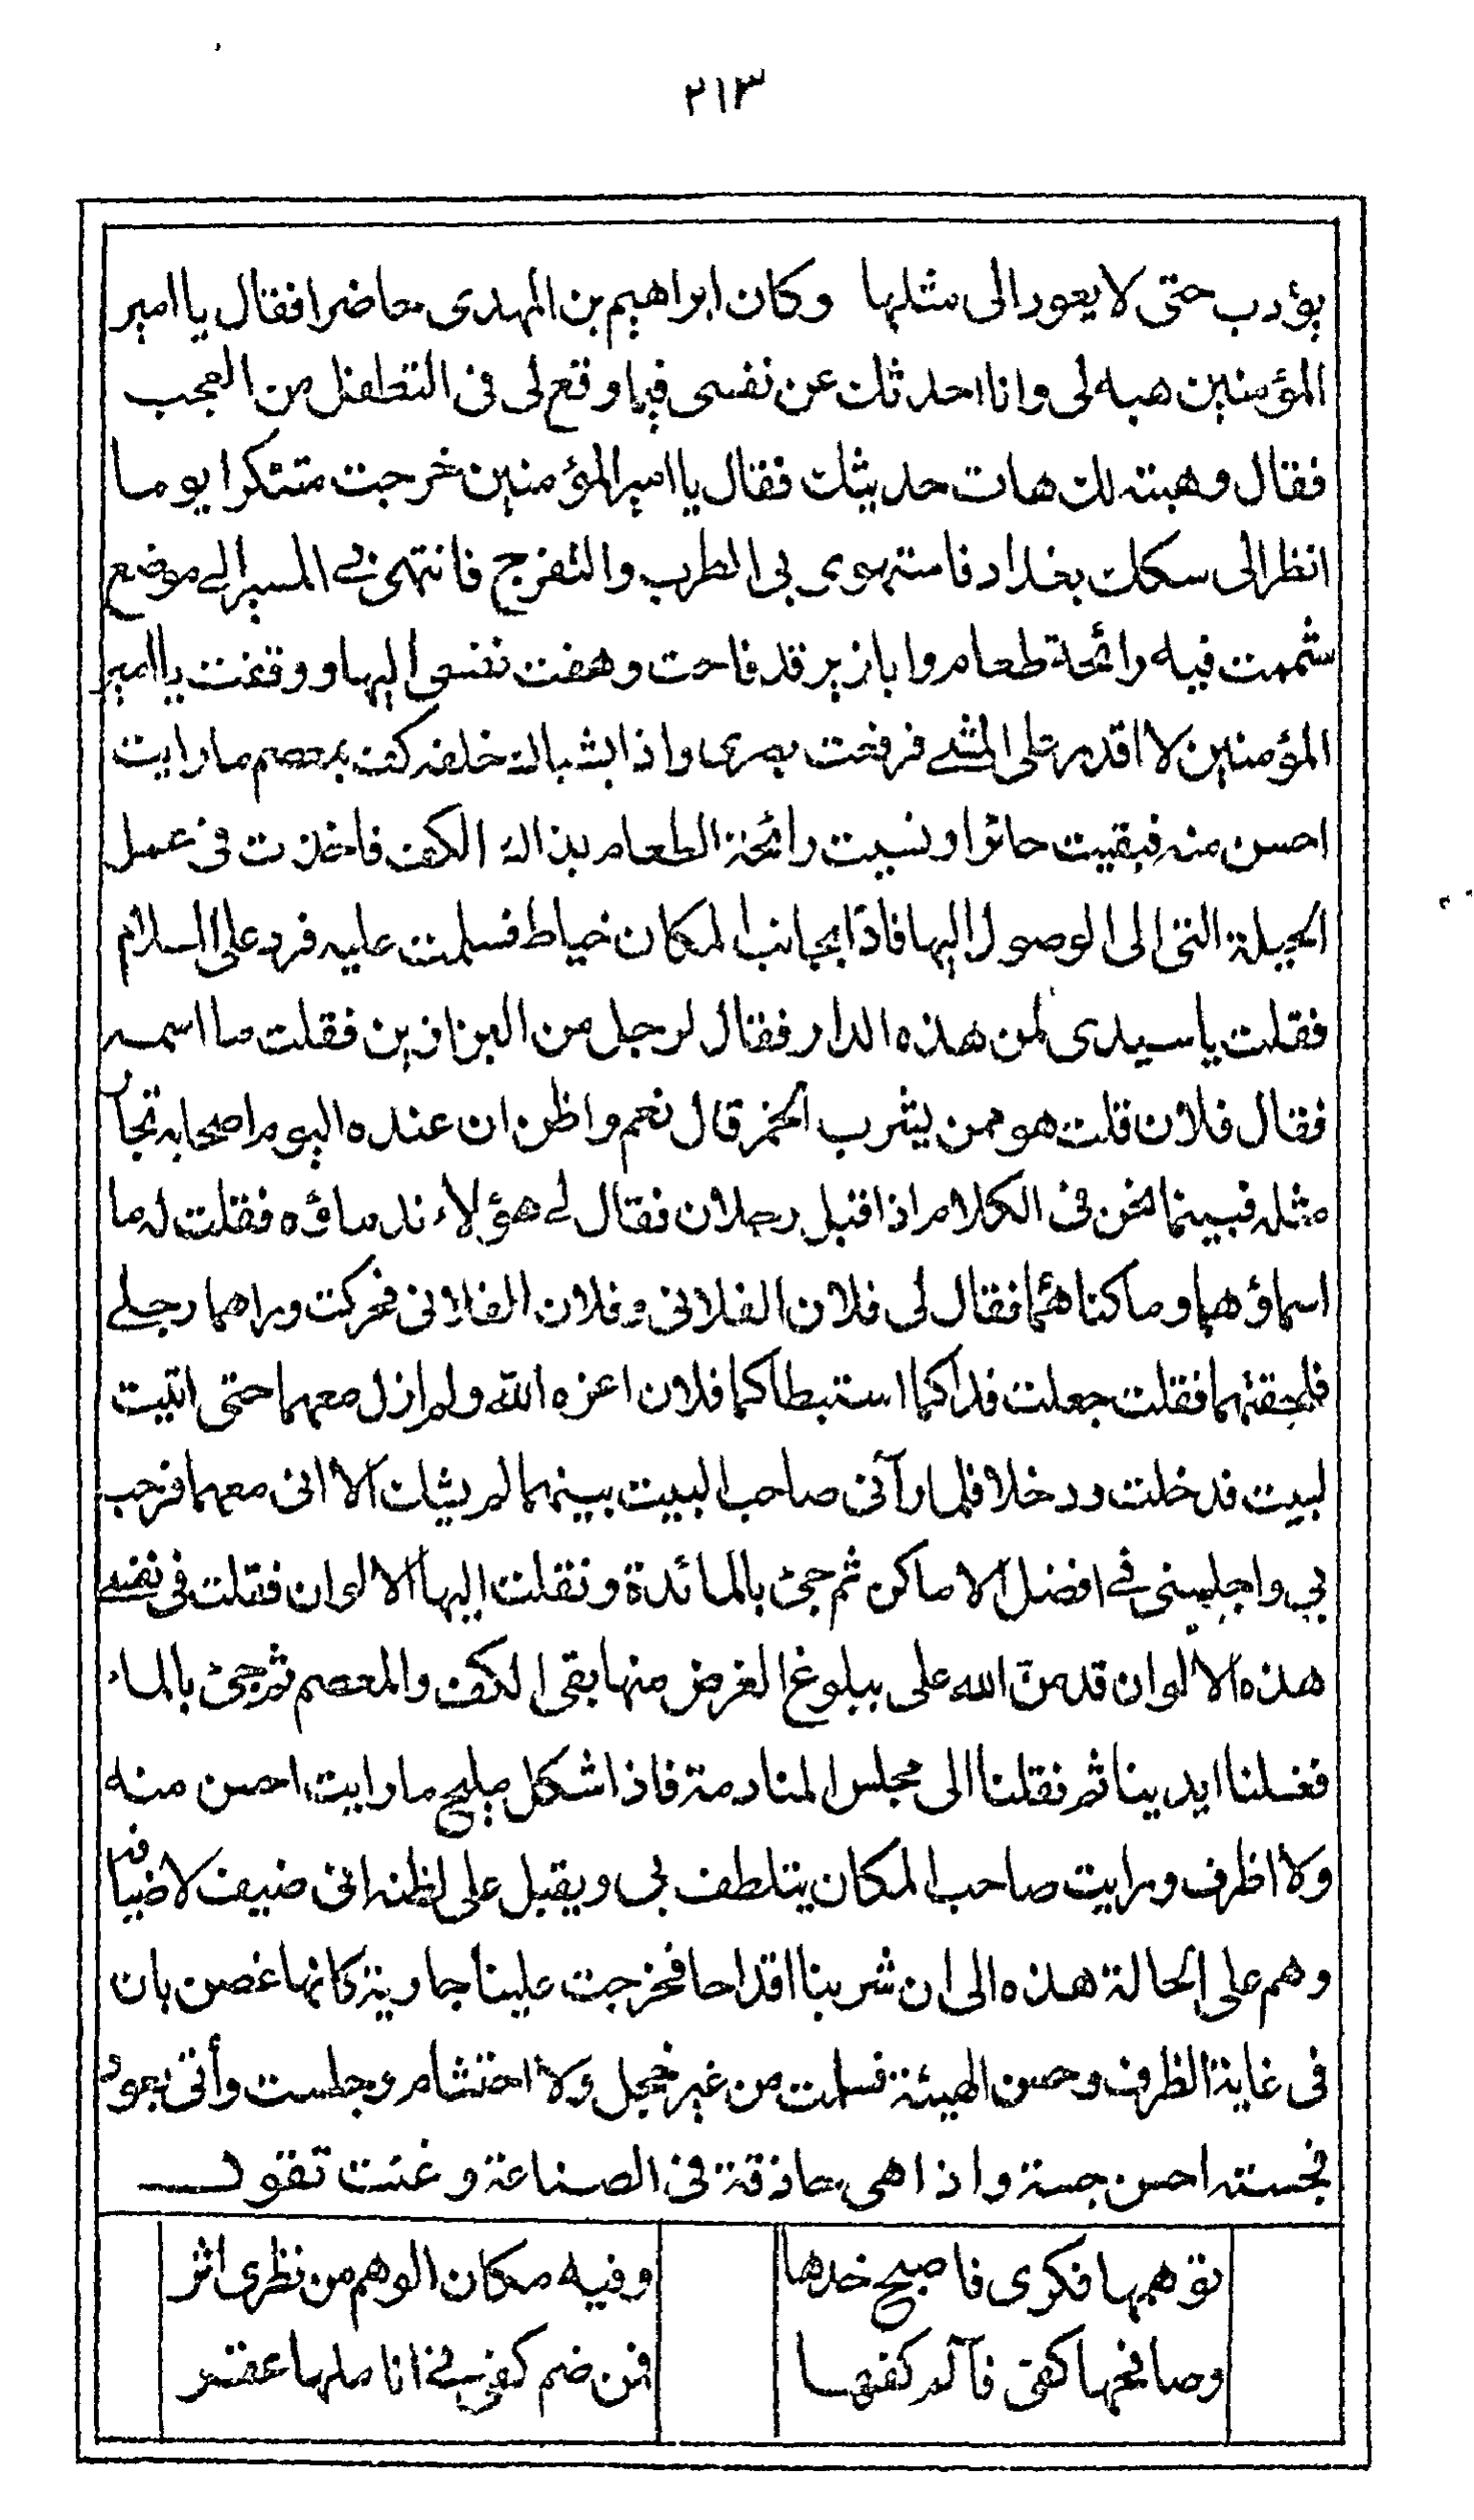 ٢١٣
يؤدب حتى لا يعود الى مثلها وكان ابراهيم بن المهدى حاضرا فقال يا امير
المؤمنين هبه لى وانا احدثك عن نفسى فيما وقع لى فى التطفل من العجب
فقال وهبته لك هات حديثك فقال يا امير المؤمنين خرجت متنكرا يوما
انظر الى سكك بغداد فاستهوى بى الطرب والتفرج فانتهى بى المسير الى موضع
شممت فيه رائحة طعام وابازير قد فاحت وهفت نفسى اليها ووقفت يا امير
المؤمنين لا اقدر على المشى فرفعت بصرى واذا بشباك خلفه كف بمعصم ما رايت
احسن منه فبقيت حائرا ونسيت رائحة الطعام بذاك الكف فاخذت فى عمل
الحيلة التى الى الوصول اليها فاذا بجانب المكان خياط فسلمت عليه فرد على السلام
فقلت يا سيدى لمن هذه الدار فقال لرجل من البزازين فقلت ما اسمه
فقال فلان قلت هو ممن يشرب الخمر قال نعم واظن ان عنده اليوم اصحابه تجار
مثله فبينما نحن فى الكلام اذ اقبل رجلان فقال لى هؤلاء ندماؤه فقلت له ما
اسماؤهما وما كناهما فقال لى فلان الفلانى وفلان الفلانى فحركت وراهما رجلى
فلحقتهما فقلت جعلت فداكما استبطاكما فلان اعزه الله ولم ازل معهما حتى اتيت
لبيت فدخلت ودخلا فلما رآنى صاحب البيت بينهما لم يشك الا انى معهما فرحب
بى واجلسنى فى افضل الاماكن ثم جئ بالمائدة ونقلت اليها الالوان فقلت فى نفسى
هذه الالوان قد من الله على ببلوغ الغرض منها بقى الكف والمعصم ثم جئ بالماء
فغسلنا ايدينا ثم نقلنا الى مجلس المنادمة فاذا شكل مليح ما رايت احسن منه
ولا اظرف ورايت صاحب المكان يتلطف بى ويقبل على لظنه انى ضيف لاضيافه
وهم على الحالة هذه الى ان شربنا اقداحا فخرجت علينا جارية كانها غصن بان
فى غاية الظرف وحسن الهيئة فسلمت من غير خجل ولا احتشام وجلست وأتى بعود
فجسته احسن جسة واذا هى حاذقة فى الصناعة وغنت تقول
توهمها فكرى فاصبح خدها وفيه مكان الوهم من نظرى اثر
وصافحها كفى فآلم كفها فمن ضم كفى فى اناملها عقر